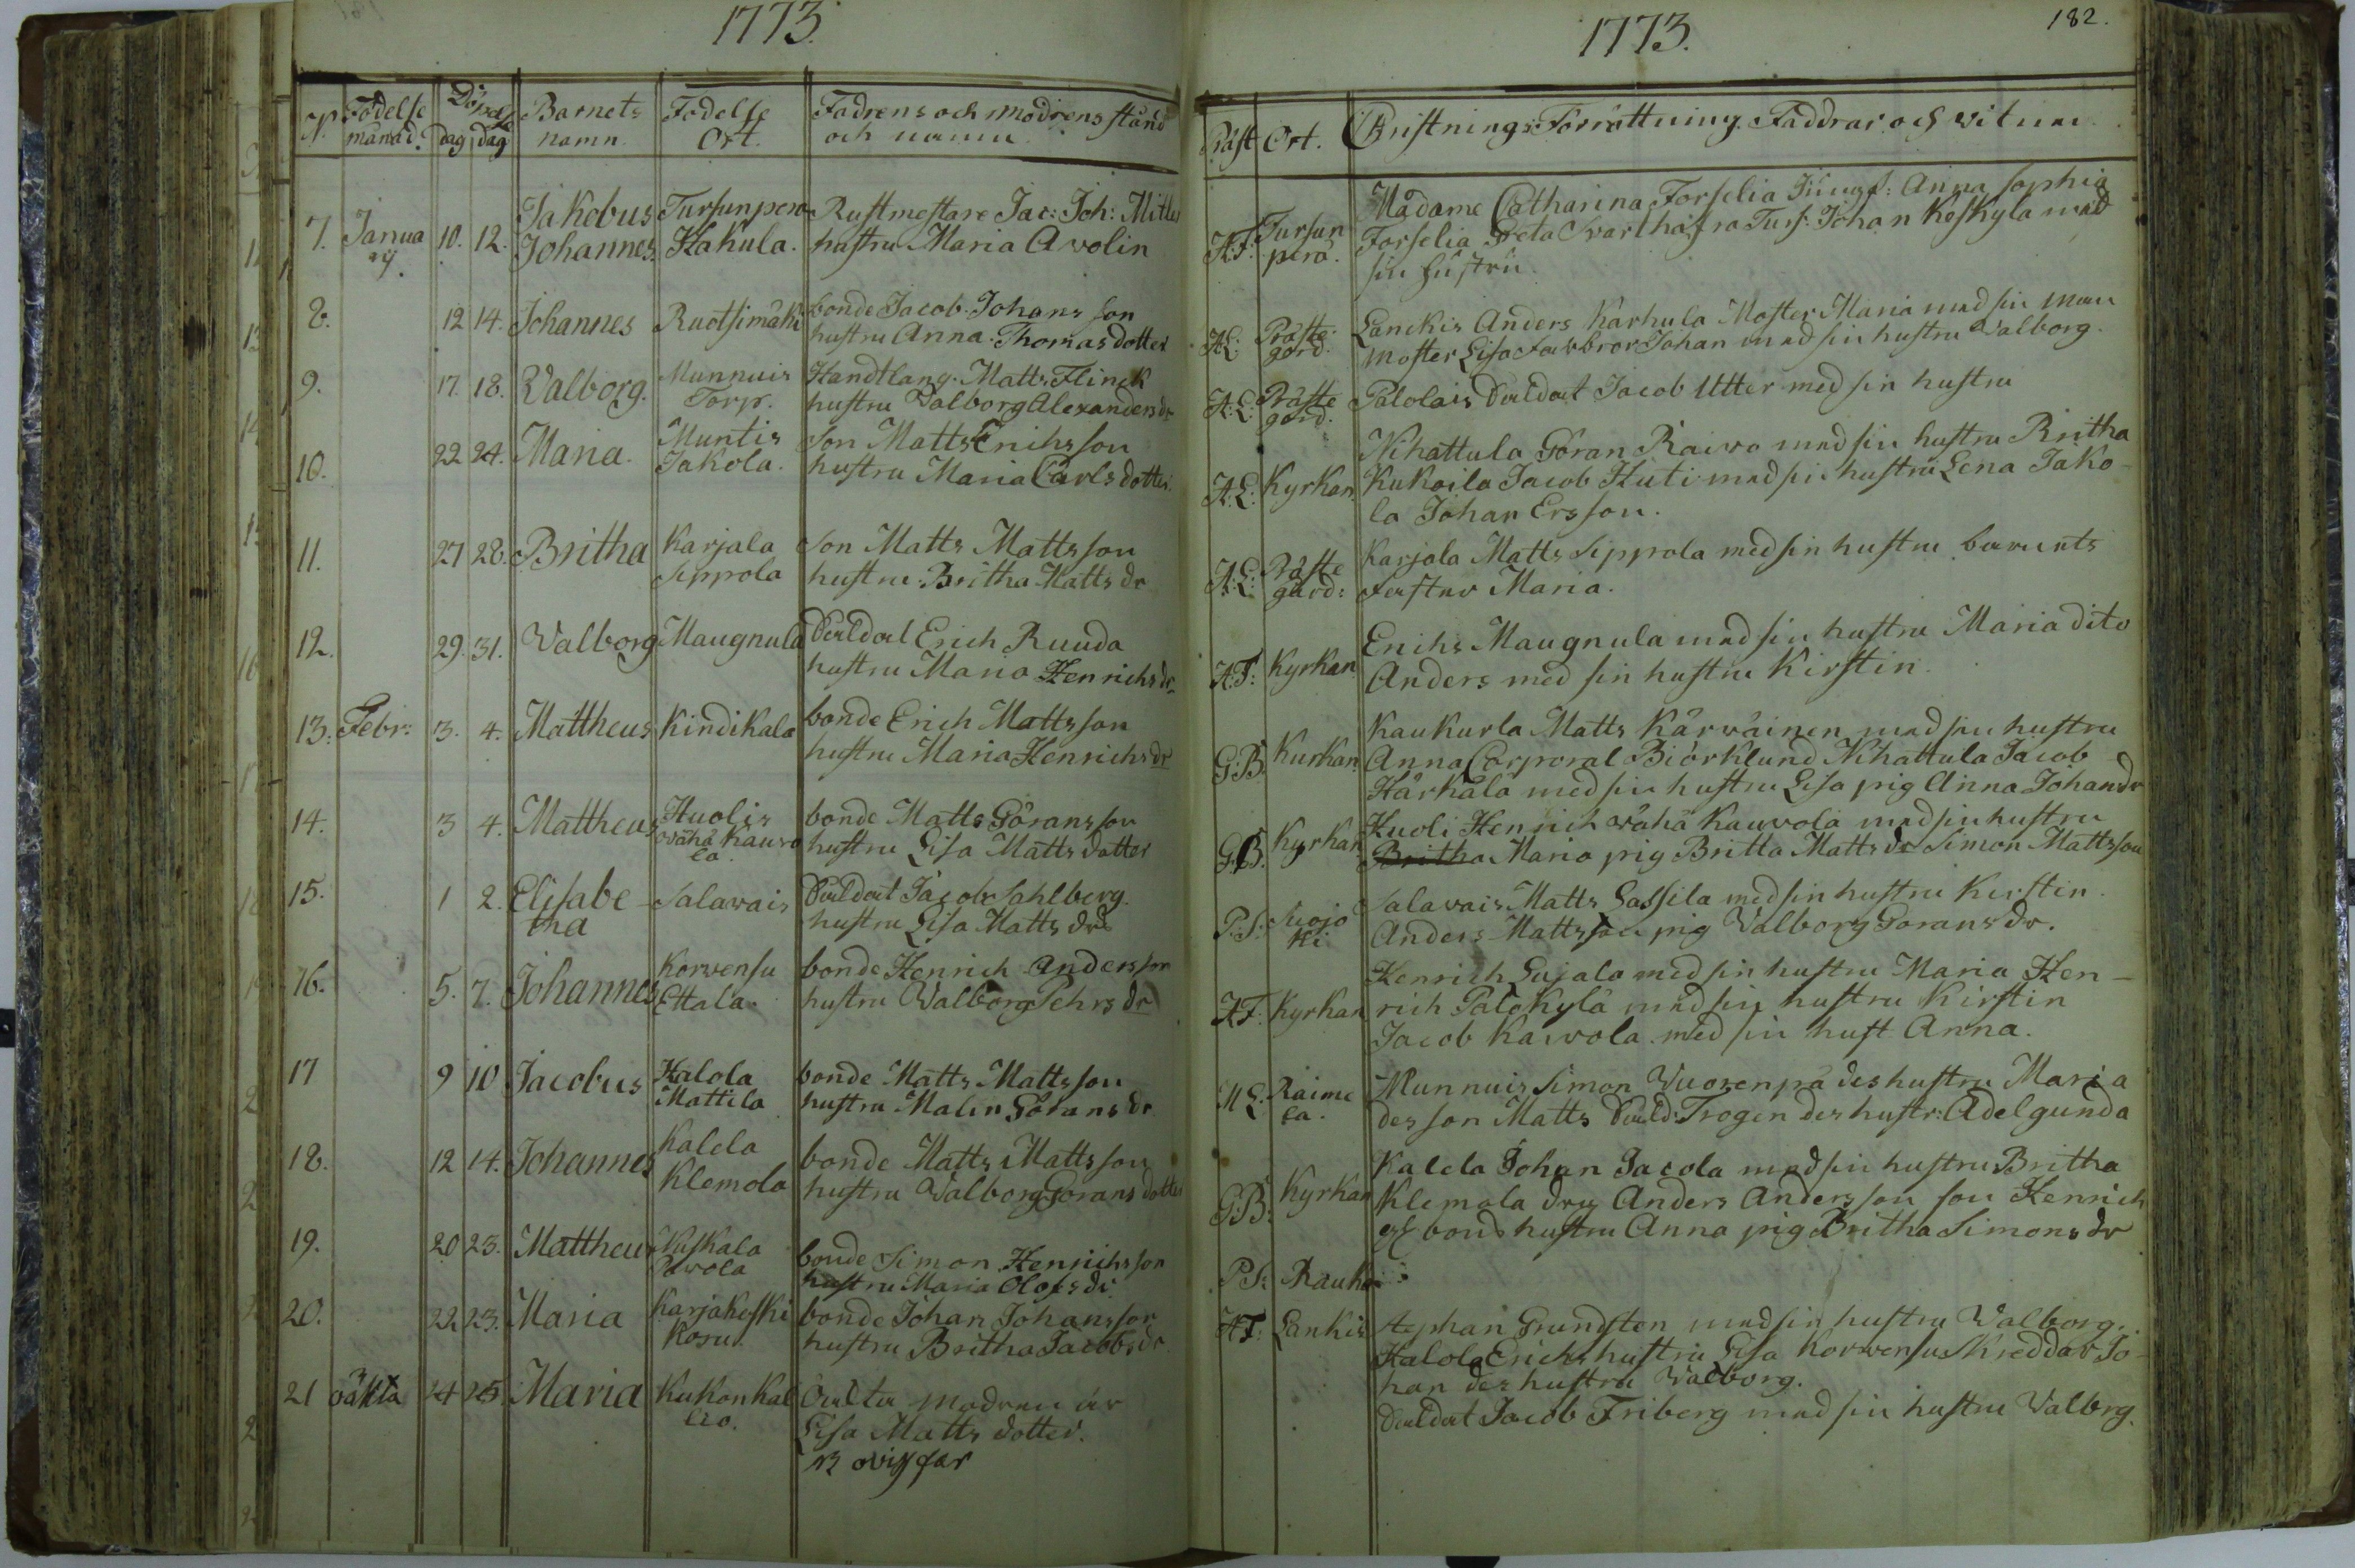 1773.
N. Födelse månad. dag Döpelse dag Barnets namn. Födelse Ort. Fadrens och modrens stånd och namn
7. Januarij. 10. 12. Jakobus Johannes. Tursunperä Hakula. Rustmestare Jac: Joh: Mitler
hustru Maria Avolin
8. 12 14. Johannes Ruotsimäki bonde Jacob Johansson
hustru Anna Thomasdotter
9. 17. 18. Valborg. Munnuis Torp. Handtlang. Matts Flinck
hustru Valborg Alexandersdr
10. 22 24. Maria. Muntis Jakola. Son Matts Erichsson
hustru Maria Carlsdotter.
11. 27 28. Britha Karjala Sippola Son Matts Mattsson
hustru Britha Matts dr
12. 29. 31. Valborg Maugnula Saldat Erich Ruuda
hustru Maria Henrichsdr
13. Febr: 3. 4. Mattheus Kindikala bonde Erich Mattsson
hustru Maria Henrichsdr
14. 3 4. Mattheus Huolis wähä Kauvola. bonde Matts Göransson
hustru Lisa Mattsdotter
15. 1 2. Elisabetha Salavais Saldat Jacob Sahlberg.
hustru Lisa Matts dr
16. 5. 7. Johannes Korvensu Ettala. bonde Henrich Andersson
hustru Valborg Pehrs dr
17 9 10 Jacobus Kalola Mattila bonde Matts Mattsson
hustru Malin Görans dr
18. 12 14. Johannes Kalela Klemola bonde Matts Mattsson
hustru Valborg Görans dotter
19. 20 23. Mattheus Pavola bonde Simon Henrichsson
hustru Maria Olofs dr.
20. 22. 23. Maria Karjakoski Kosu. bonde Johan Johansson
hustru Britha Jacobs dr.
21 oäkta 24 25. Maria Kukonkallio. modren är
Lisa Matts dotter.
1773. 182.
Präst Ort. Christnings Förrättning. Faddrar och witnen
H.F. Tursunperä. Madame Catharina Forselia Jungf: Anna Sophia
Forselia Greta Svarthafra Turs: Johan Keskyla med
sin hustru.
A.L: Prästegård. Lanckis Anders Karhula Moster Maria med sin man
moster Lisa Farbror Johan med sin hustru Valborg.
A:L: Prästegård. Palolais Saldat Jacob Utter med sin hustru
A:L: Kyrkan. Nihattula Göran Raivo med sin hustru Britha
Kukoila Jacob Huti med sin hustru Lena Jako-
la Johan Ersson.
A:L: Prästegård: Karjala Matts Sippola med sin hustru barnets
Faster Maria.
H:F: Kyrkan. Erichs Maugnula med sin hustru Maria dito
Anders med sin hustru Kirstin
G:B. Kurkan. Kaukurla Matts Kärväinen med sin hustru
Anna Corporal Biörklund Nihattula Jacob
Härkälä med sin hustru Lisa pig Anna Johansdr
G.B. Kyrkan Huoli Henrich wähä Kauvola med sin hustru
Britha Maria pig Britta Matts dr Simon Mattsson
P.S: Suojoki Salavais Matts Lassila med sin hustru Kirstin.
Anders Mattsson pig Valborg Görans dr.
H.F: Kyrkan Henrich Lujala med sin hustru Maria Hen-
rich Palokylä med sin hustru Kirstin
Jacob Kavola med sin hust Anna.
A.L: Raimela. Munnuis Simon Vuorenpä des hustru Maria
des son Matts Sald: Trogen des hustr: Adelgunda
G:B: Kyrkan Kalela Johan Jacola med sin hustru Britha
Klemola drg Anders Andersson son Henrich
och bond hustru Anna pig Britha Simons dr
P.S: Rauha
H.F: Lankis Stephan Grundsten med sin hustru Valborg.
Kalola Erichs hustru Lisa Korvensu skreddar Jo-
han des hustru Valborg.
Saldat Jacob Friberg med sin hustru Valbrg.